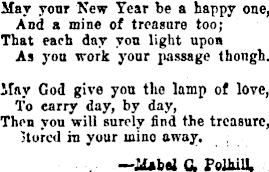 May your New Year be a happy one,
And a mine of treasure too;
That each day you light upon
As you work your passage though.
May God give you the lamp of love,
To carry day, by day,
Then you will surely find the treasure,
Stored in your mine away.
—Mabel C. Polhill.